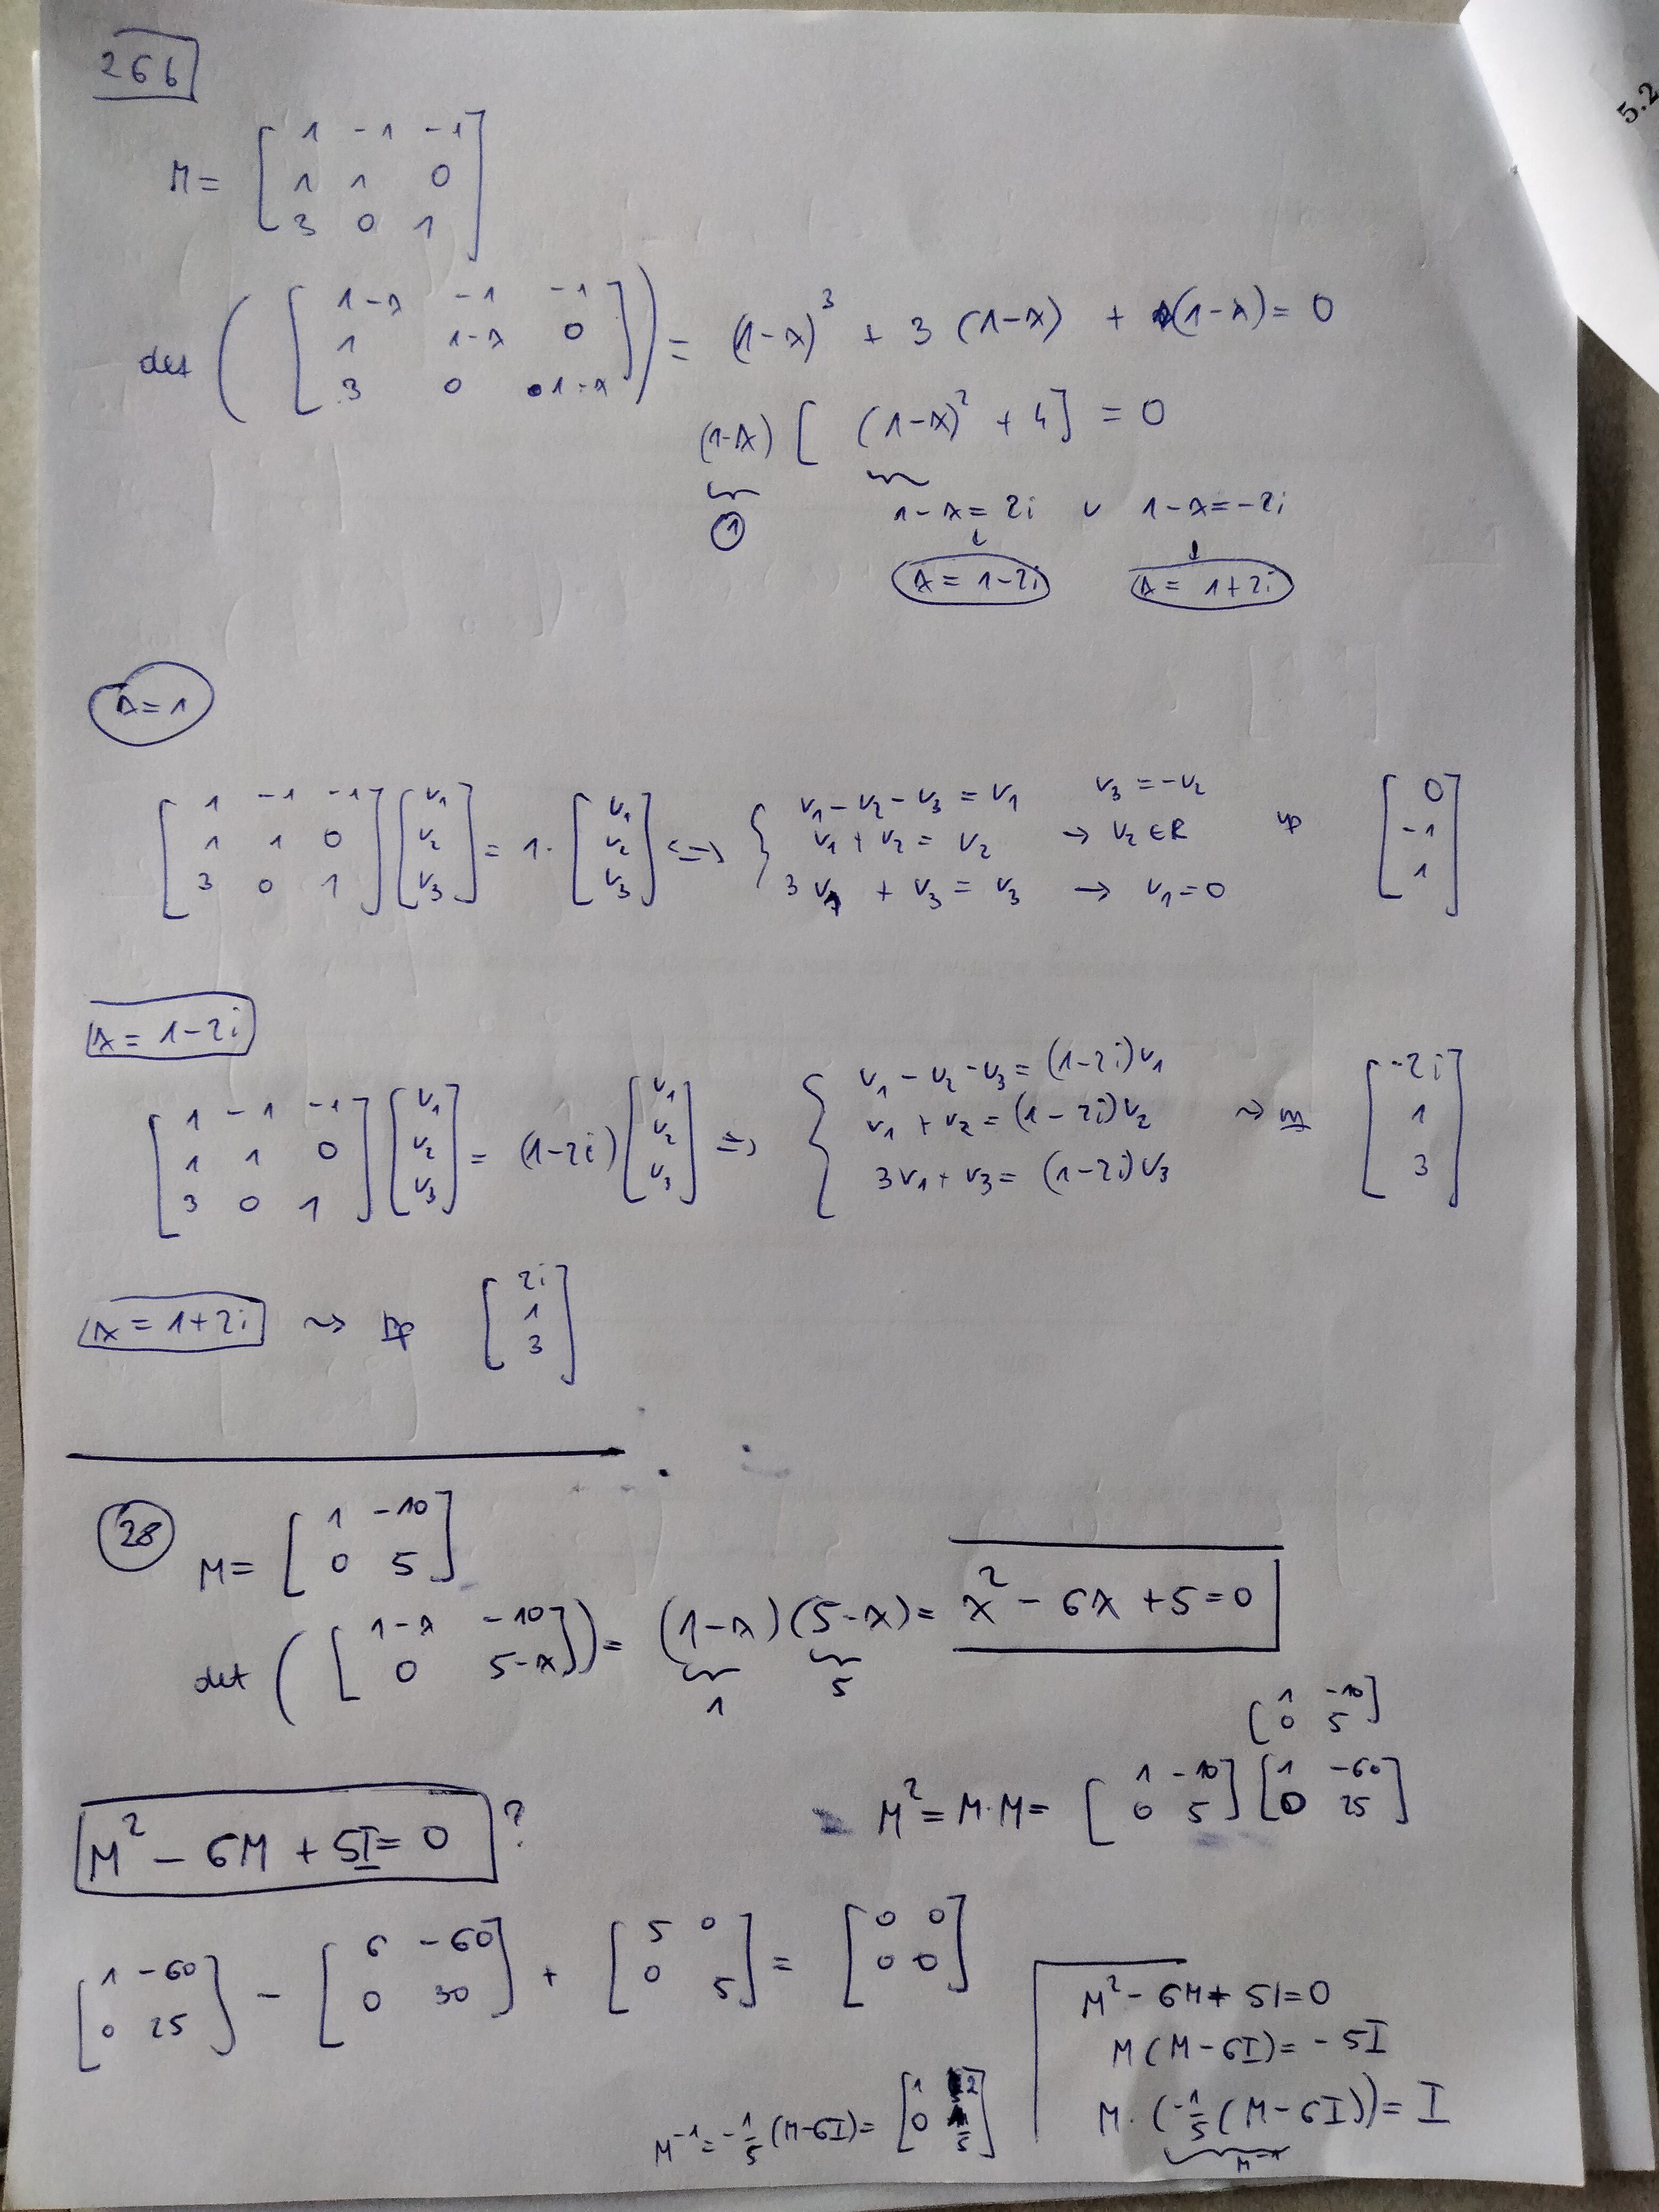 5.2
26b
M = [ 1 -1 -1
1 1 0
3 0 1 ]
det ( [ 1-λ -1 -1
1 1-λ 0
3 0 1-λ ] ) = (1-λ)³ + 3 (1-λ) + (1-λ) = 0
(1-λ) [ (1-λ)² + 4 ] = 0
1 1-λ = 2i ∨ 1-λ = -2i
λ = 1-2i λ = 1+2i
λ = 1
[ 1 -1 -1
1 1 0
3 0 1 ] [ v₁
v₂
v₃ ] = 1 · [ v₁
v₂
v₃ ] <=> { v₁ - v₂ - v₃ = v₁ v₃ = -v₂
v₁ + v₂ = v₂ → v₂ ∈ R
3 v₁ + v₃ = v₃ → v₁ = 0
np [ 0
-1
1 ]
λ = 1-2i
[ 1 -1 -1
1 1 0
3 0 1 ] [ v₁
v₂
v₃ ] = (1-2i) [ v₁
v₂
v₃ ] => { v₁ - v₂ - v₃ = (1-2i)v₁
v₁ + v₂ = (1-2i)v₂
3v₁ + v₃ = (1-2i)v₃
⇝ [ -2i
1
3 ]
λ = 1+2i ⇝ np [ 2i
1
3 ]
28
M = [ 1 -10
0 5 ]
det ( [ 1-λ -10
0 5-λ ] ) = (1-λ)(5-λ) = λ² - 6λ + 5 = 0
1 5
[ 1 -10
0 5 ]
M² = M·M = [ 1 -10
0 5 ] [ 1 -60
0 25 ]
M² - 6M + 5I = 0 ?
[ 1 -60
0 25 ] - [ 6 -60
0 30 ] + [ 5 0
0 5 ] = [ 0 0
0 0 ]
M² - 6M + 5I = 0
M (M-6I) = -5I
M · (-1/5 (M-6I)) = I
M⁻¹
M⁻¹ = -1/5 (M-6I) = [ 1 2
0 1/5 ]